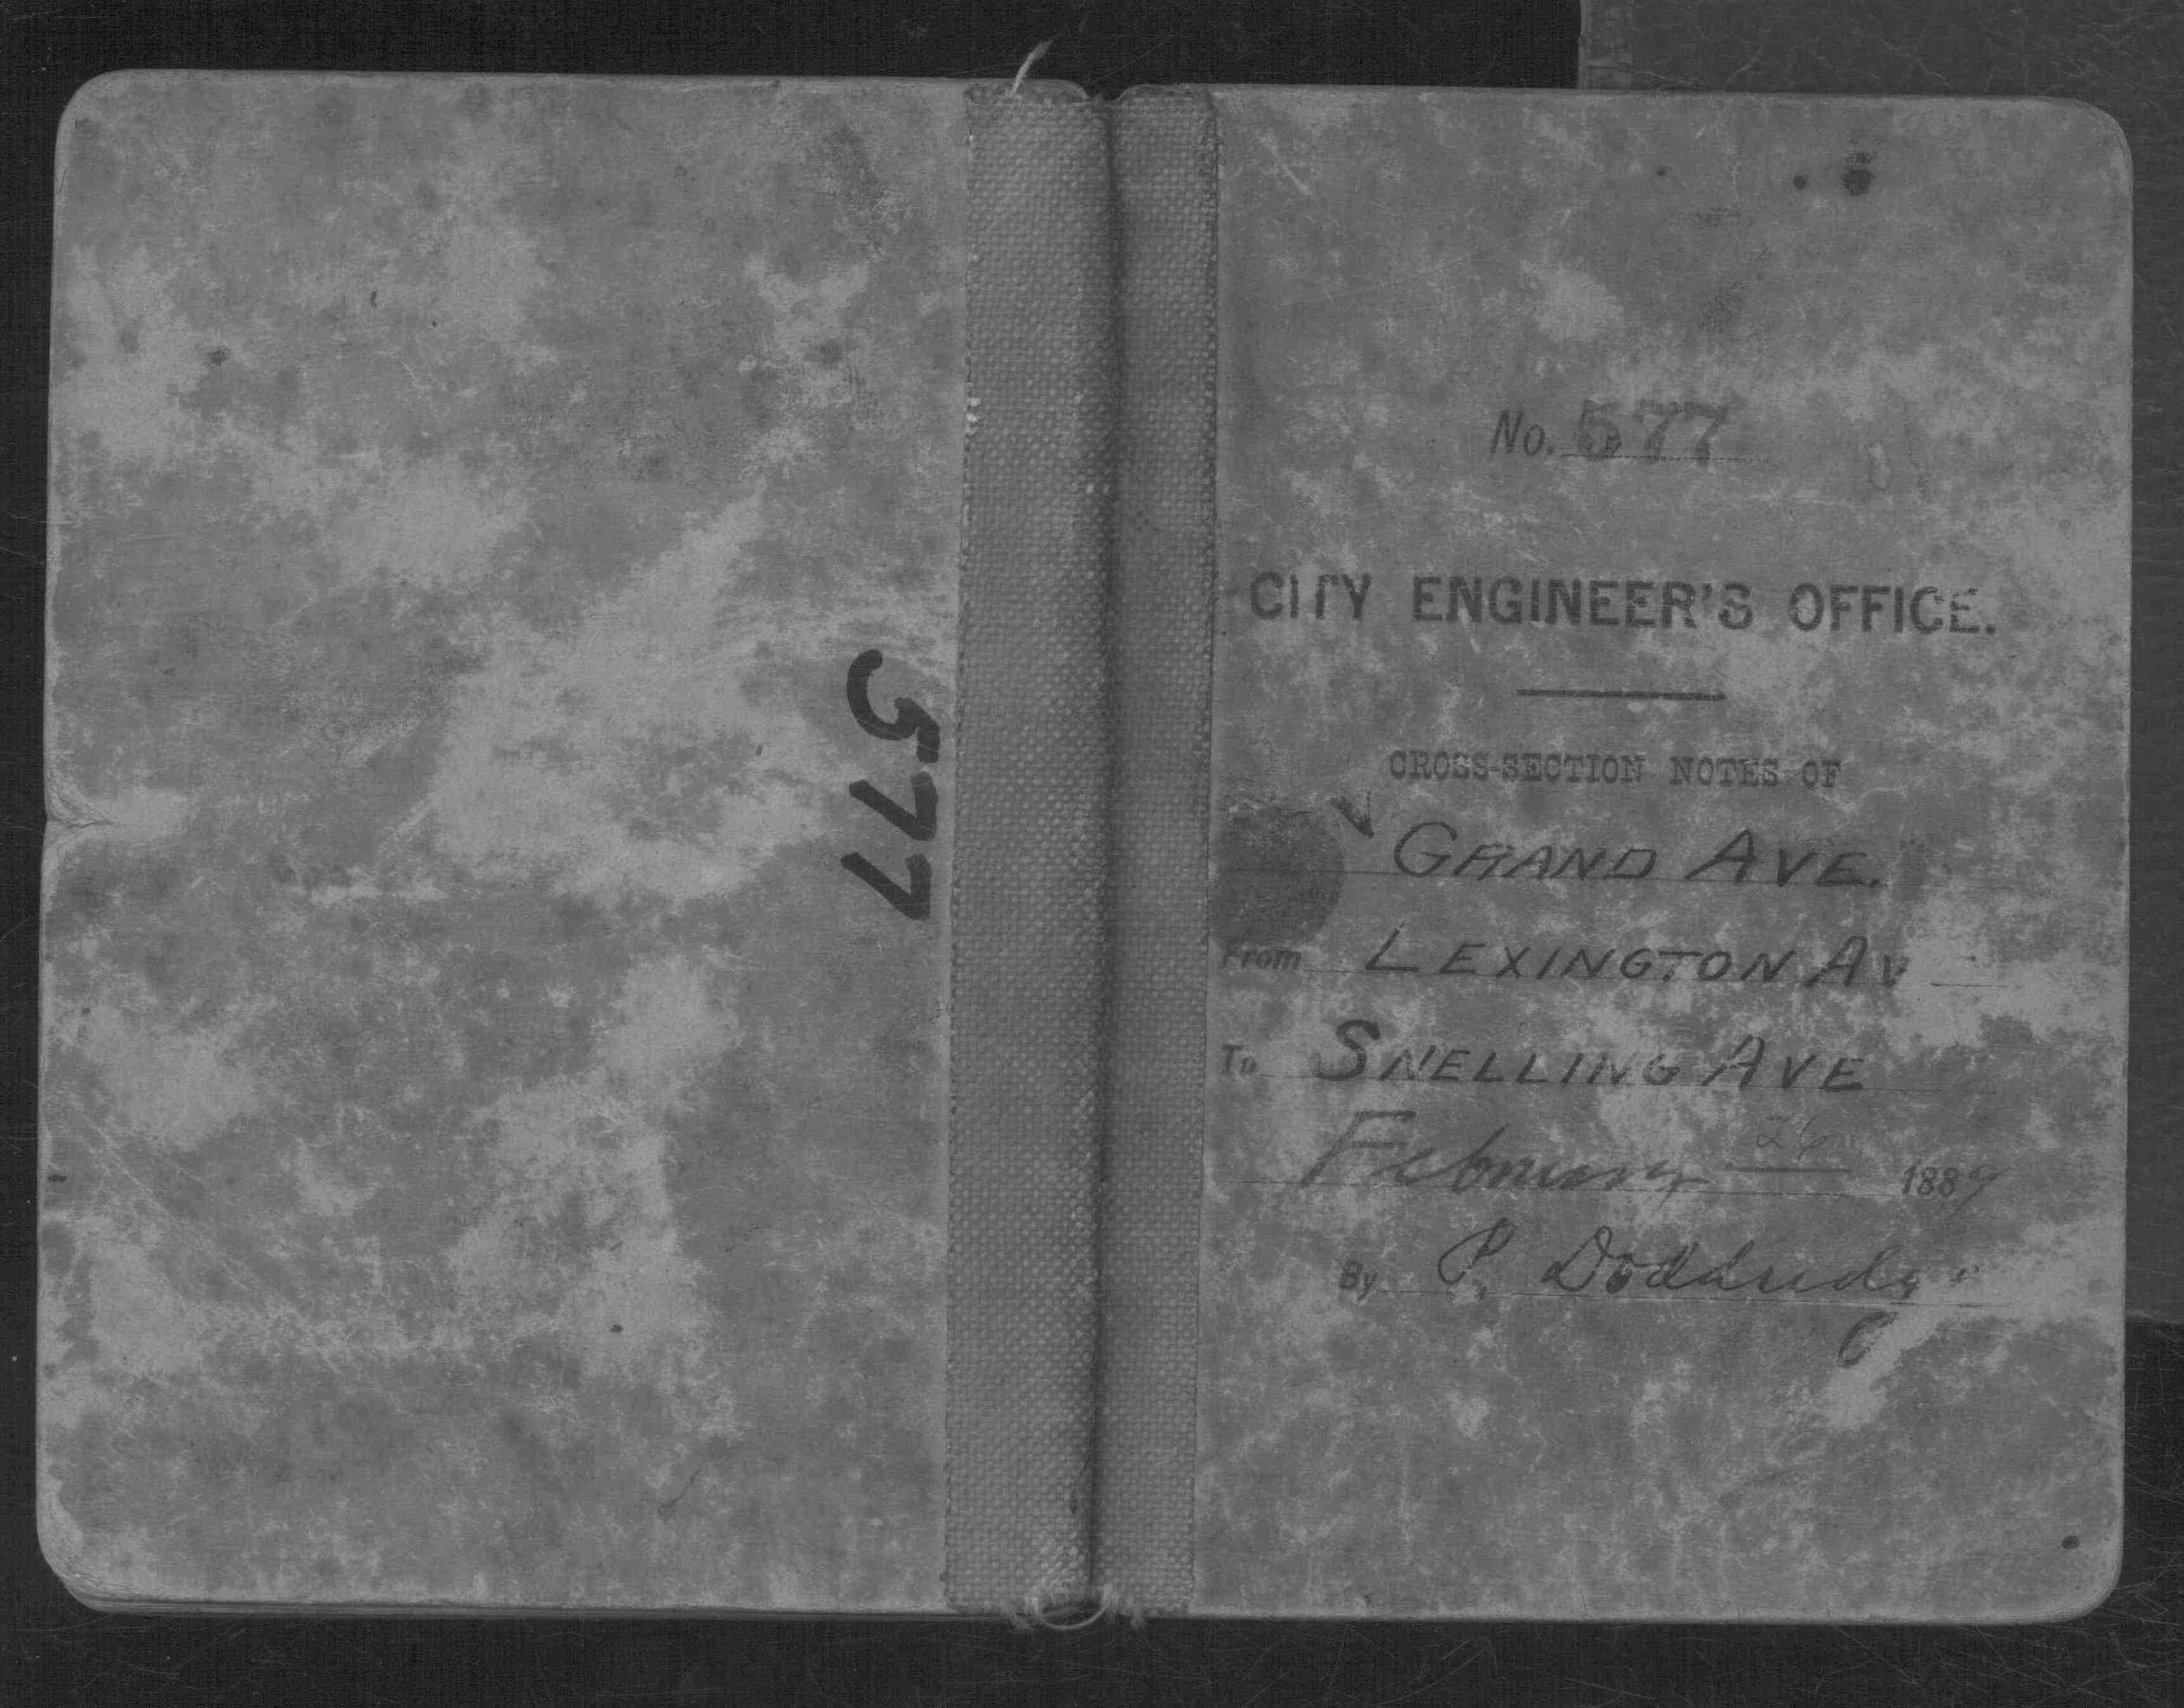 577
No. 577
CITY ENGINEER'S OFFICE.
CROSS-SECTION NOTES OF
GRAND AVE.
From LEXINGTON AV
To SNELLING AVE
February 26 1889
By P. Doddridge